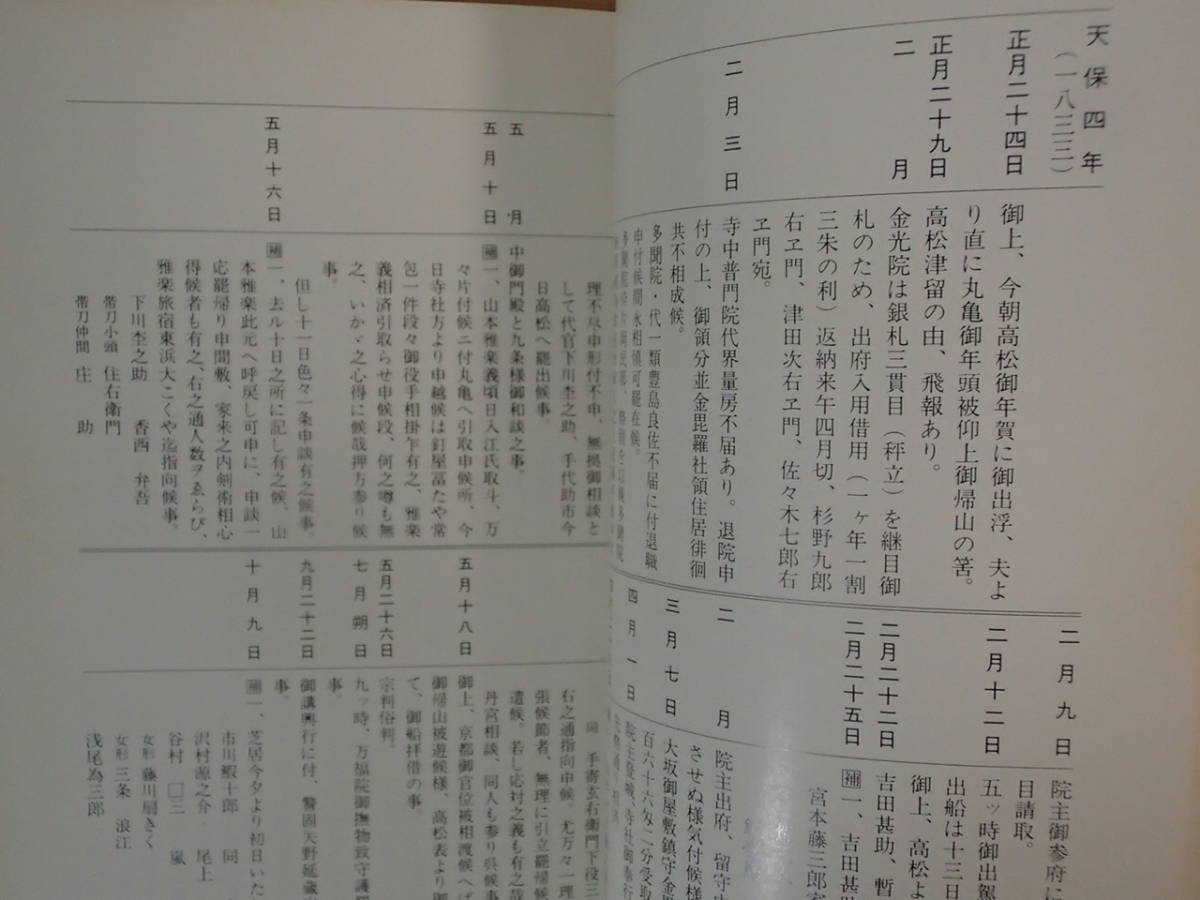 天保四年
(一八三三)
正月二十四日
御上、今朝高松御年賀に御出浮、夫よ
り直に丸亀御年頭被仰上御帰山の筈。
正月二十九日
高松津留の由、飛報あり。
二月
金光院は銀札三貫目(秤立)を継目御
札のため、出府入用借用(一ヶ年一割
三朱の利)返納来午四月切、杉野九郎
右ヱ門、津田次右ヱ門、佐々木七郎右
ヱ門宛。
二月三日
寺中普門院代界量房不届あり。退院申
付の上、御領分並金毘羅社領住居徘徊
共不相成候。
多聞院・代一類豊島良佐不届に付退職
申付候間永相慎可罷在候。
二月九日
院主御参府に
目請取。
二月十二日
五ッ時御出駕
出船は十三日
二月二十二日
御上、高松よ
二月二十五日
吉田甚助、暫
補一、吉田甚助
宮本藤三郎
二月
院主出府、留守
させぬ様気付候様
三月七日
大坂御屋敷鎮守金
百六十六匁二分受取
四月一日
院主登城、寺社御奉行
理不尽申形付不申、無拠御相談と
して代官下川杢之助、手代助市今
日高松へ罷出候事。
五月
中御門殿と九条様御和談之事。
五月十日
補一、山本雅楽義頃日入江氏取斗、万
々片付候ニ付丸亀へ引取申候所、今
日寺社方より申越候は釘屋冨たや常
包一件段々御役手相掛乍有之、雅楽
義相済引取らせ申候段、何之噂も無
之、いかゞ之心得に候哉押方参り候
事。
但し十一日色々一条申談有之候事。
五月十六日
補一、去ル十日之所に記し有之候、山
本雅楽此元へ呼戻し可申に、申談一
応罷帰り申間敷、家来之内剣術相心
得候者も有之、右之通人数ヲゑらび、
雅楽旅宿東浜大こくや迄指向候事。
下川杢之助 香西弁吾
帯刀小頭 住右衛門
帯刀仲間 庄助
同 手寄玄右衛門下役三
右之通指向申候、尤万々一理
張候節者、無理に引立罷帰候
遣候。若し応対之義も有之哉
丹宮相談、同人も参り呉候事
五月十八日
御上、京都御官位被相渡候へば
御帰山被遊候様、高松表より御
て、御船拝借の事。
五月二十六日
宗判俗判。
七月朔日
九ッ時、万福院御撫物致守護
事。
九月二十二日
御講興行に付、警固天野延蔵
事。
十月九日
補一、芝居今夕より初日いた
市川鰕十郎 同
沢村源之介 尾上
谷村 □三 嵐
女形 藤川扇きく
女形 三条浪江
浅尾為三郎